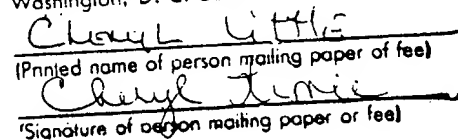 Washington, D. C.
Cheryl Little
(Printed name of person mailing paper of fee)
Cheryl Little
(Signature of person mailing paper or fee)